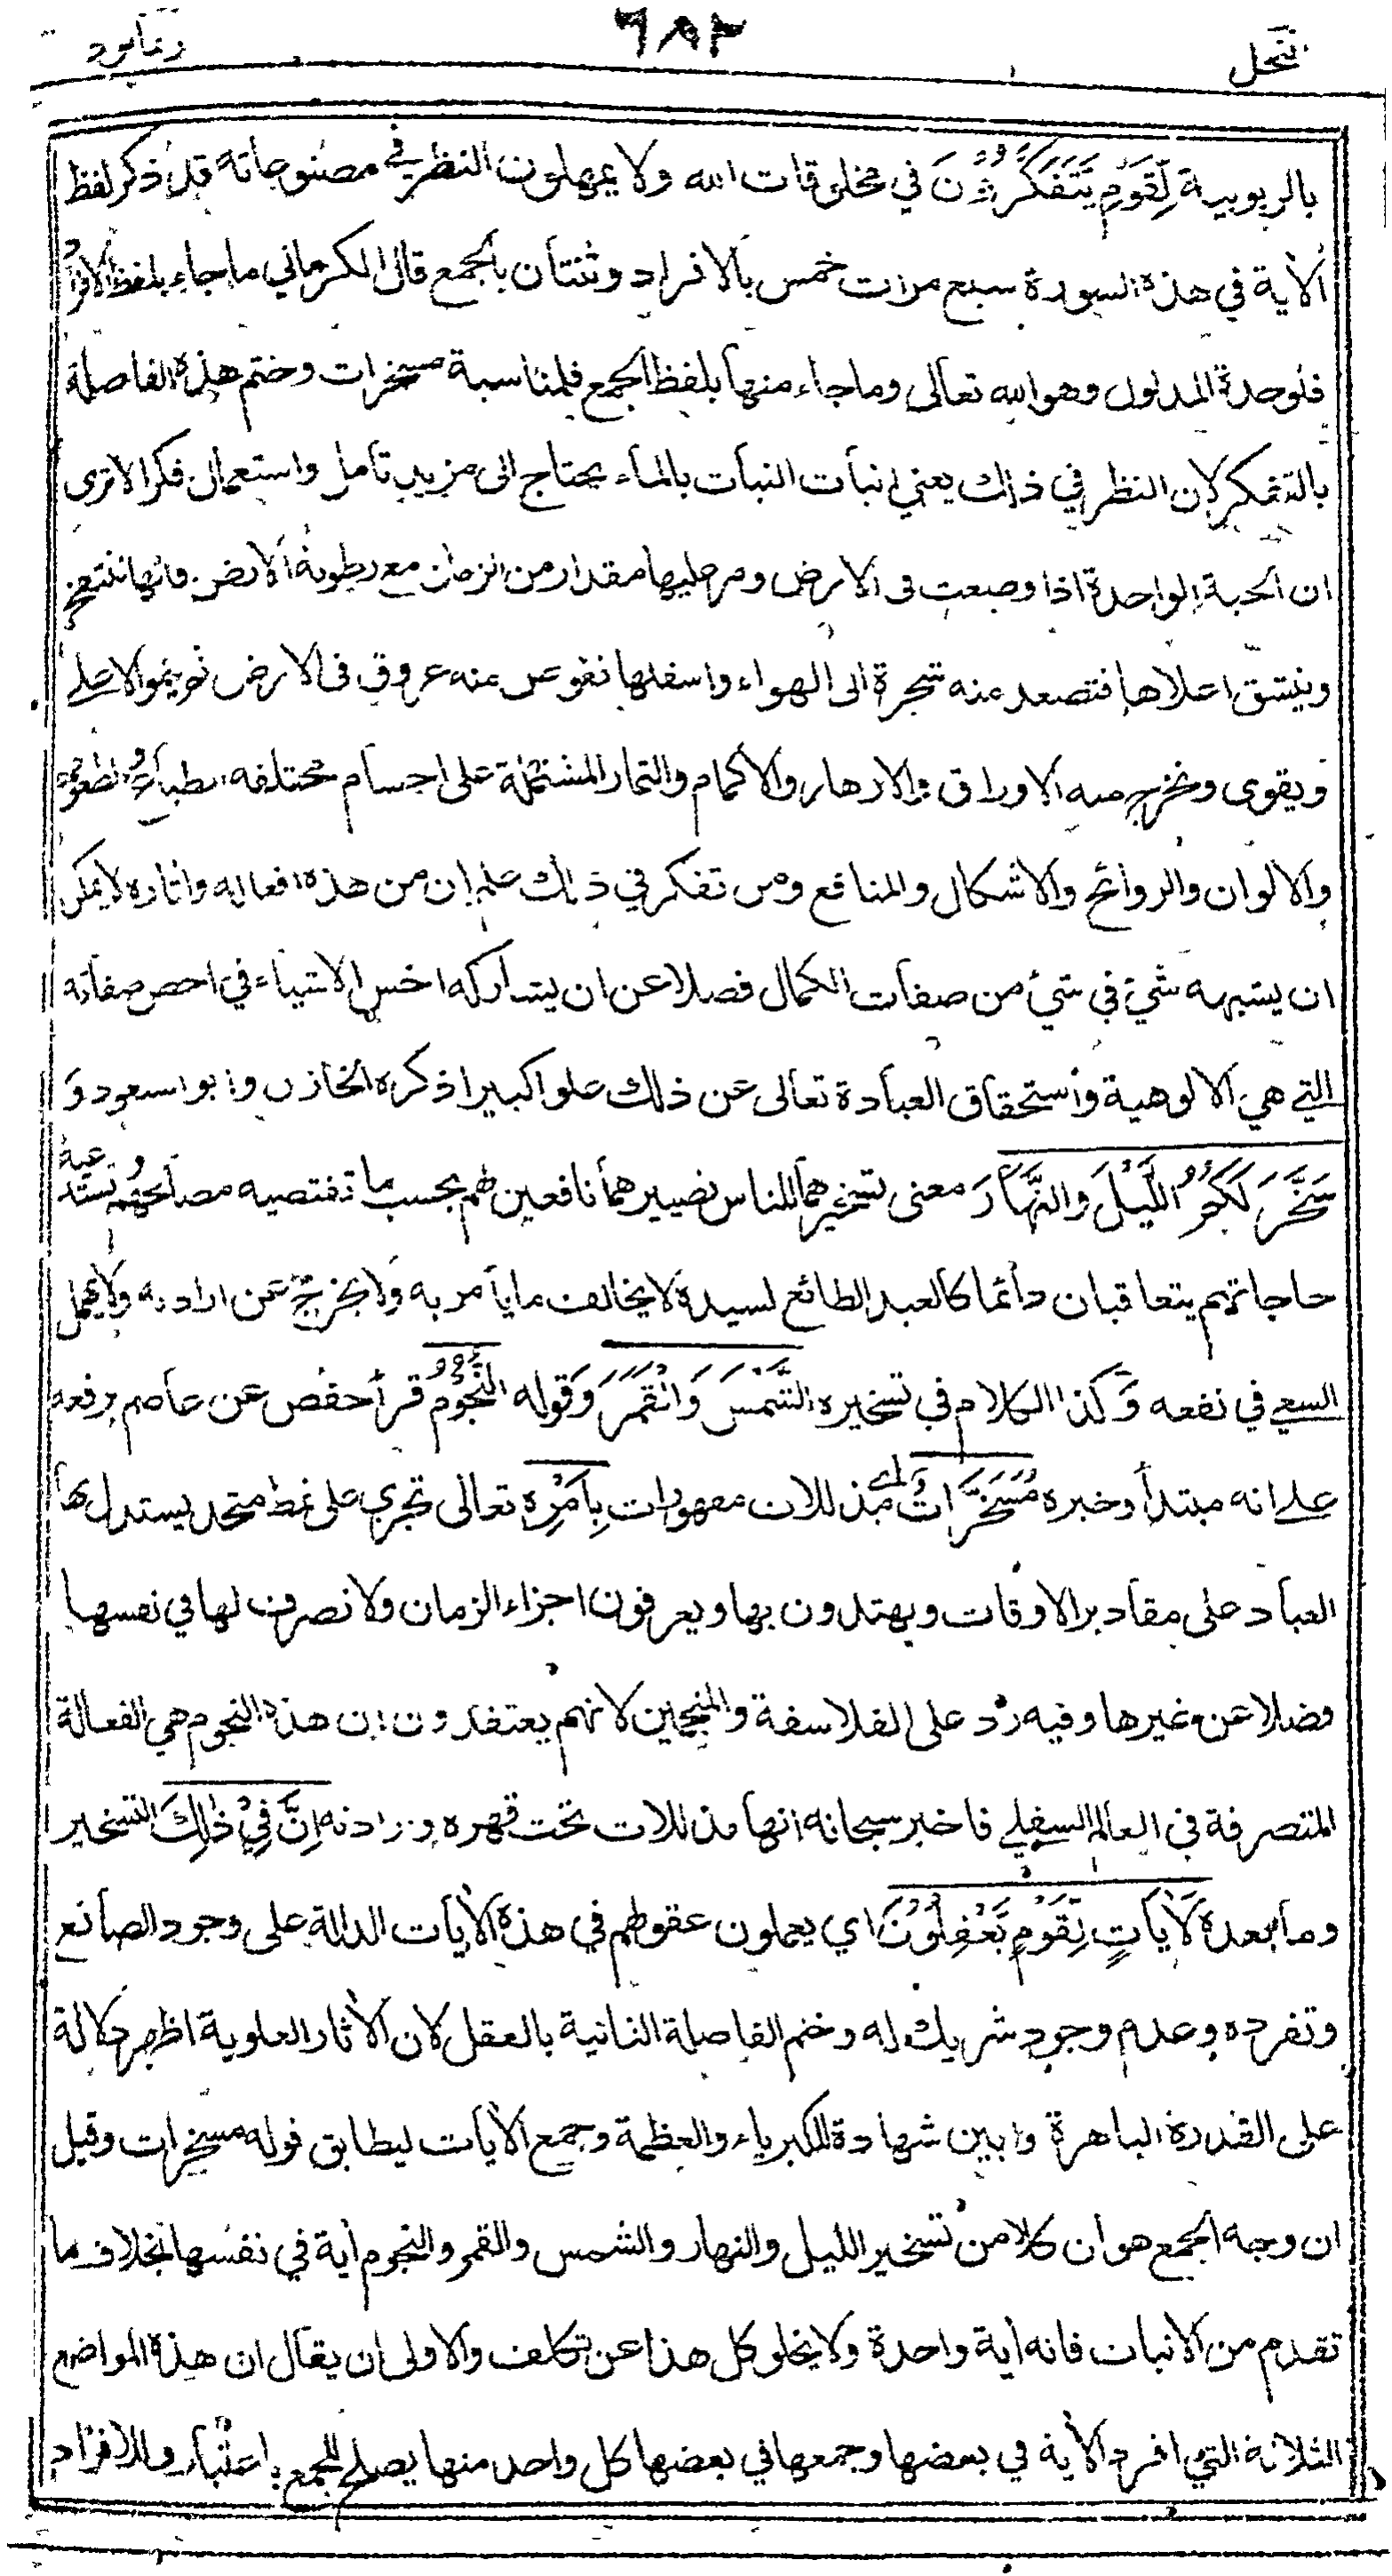 النحل
٦٨٢
ربما يود
بالربوبية لِّقَوْمٍ يَّتَفَكَّرُوْنَ في مخلوقات الله ولا يمهلون النظر في مصنوعاته قد ذكر لفظ
الأية في هذه السورة سبع مرات خمس بالافراد وثنتان بالجمع قال الكرماني ما جاء بلفظ الافراد
فلوحدة المدلول وهو الله تعالى وما جاء منها بلفظ الجمع فلمناسبة مسخرات وختم هذه الفاصلة
بالتفكر لان النظر في ذلك يعني انبات النبات بالماء يحتاج الى مزيد تامل واستعمال فكر الا ترى
ان الحبة الواحدة اذا وضعت فى الارض ومر عليها مقدار من الزمان مع رطوبة الارض فانها تنتفخ
وينشق اعلاها فتصعد منه شجرة الى الهواء واسفلها تغوص منه عروق فى الارض ثم ينمو الاعلى
ويقوى وتخرج منه الاوراق والازهار والاكمام والثمار المشتملة على اجسام مختلفة الطبائع والطعوم
والالوان والروائح والاشكال والمنافع ومن تفكر في ذلك علم ان من هذه افعاله واثاره لا يمكن
ان يشبهه شيء في شيء من صفات الكمال فضلا عن ان يشاركه اخس الاشياء في اخص صفاته
التي هي الالوهية واستحقاق العبادة تعالى عن ذلك علوا كبيرا ذكره الخازن وابو السعود وَ
سَخَّرَ لَكُمُ اللَّيْلَ وَالنَّهَارَ معنى تسخيرهما للناس تصييرهما نافعين لهم بحسب ما تقتضيه مصالحهم وتستدعيه
حاجاتهم يتعاقبان دائما كالعبد الطائع لسيده لا يخالف ما يأمر به ولا يخرج عن ارادته ولا يهمل
السعي في نفعه وَكذا الكلام في تسخيره الشَّمْسَ وَالْقَمَرَ وَقوله النُّجُوْمُ قرأ حفص عن عاصم برفعه
على انه مبتدأ وخبره مُسَخَّرَاتٌ اي مذللات مقهورات بِأَمْرِه تعالى تجري على نمط متحد يستدل بها
العباد على مقادير الاوقات ويهتدون بها ويعرفون اجزاء الزمان ولا تصرف لها في نفسها
فضلا عن غيرها وفيه رد على الفلاسفة والمنجمين لانهم يعتقدون ان هذه النجوم هي الفعالة
المتصرفة في العالم السفلي فاخبر سبحانه انها مذللات تحت قهره وارادته اِنَّ فِيْ ذٰلِكَ التسخير
وما بعده لَأٰيَاتٍ لِّقَوْمٍ يَّعْقِلُوْنَ اي يعملون عقولهم في هذه الأيات الدالة على وجود الصانع
وتفرده وعدم وجود شريك له وختم الفاصلة الثانية بالعقل لان الأثار العلوية اظهر دلالة
على القدرة الباهرة وابين شهادة للكبرياء والعظمة وجمع الأيات ليطابق قوله مسخرات وقيل
ان وجه الجمع هو ان كلا من تسخير الليل والنهار والشمس والقمر والنجوم أية في نفسها بخلاف ما
تقدم من الانبات فانه أية واحدة ولا يخلو كل هذا عن تكلف والاولى ان يقال ان هذه المواضع
الثلاثة التي افرد الأية في بعضها وجمعها في بعضها كل واحد منها يصلح للجمع باعتبار وللافراد